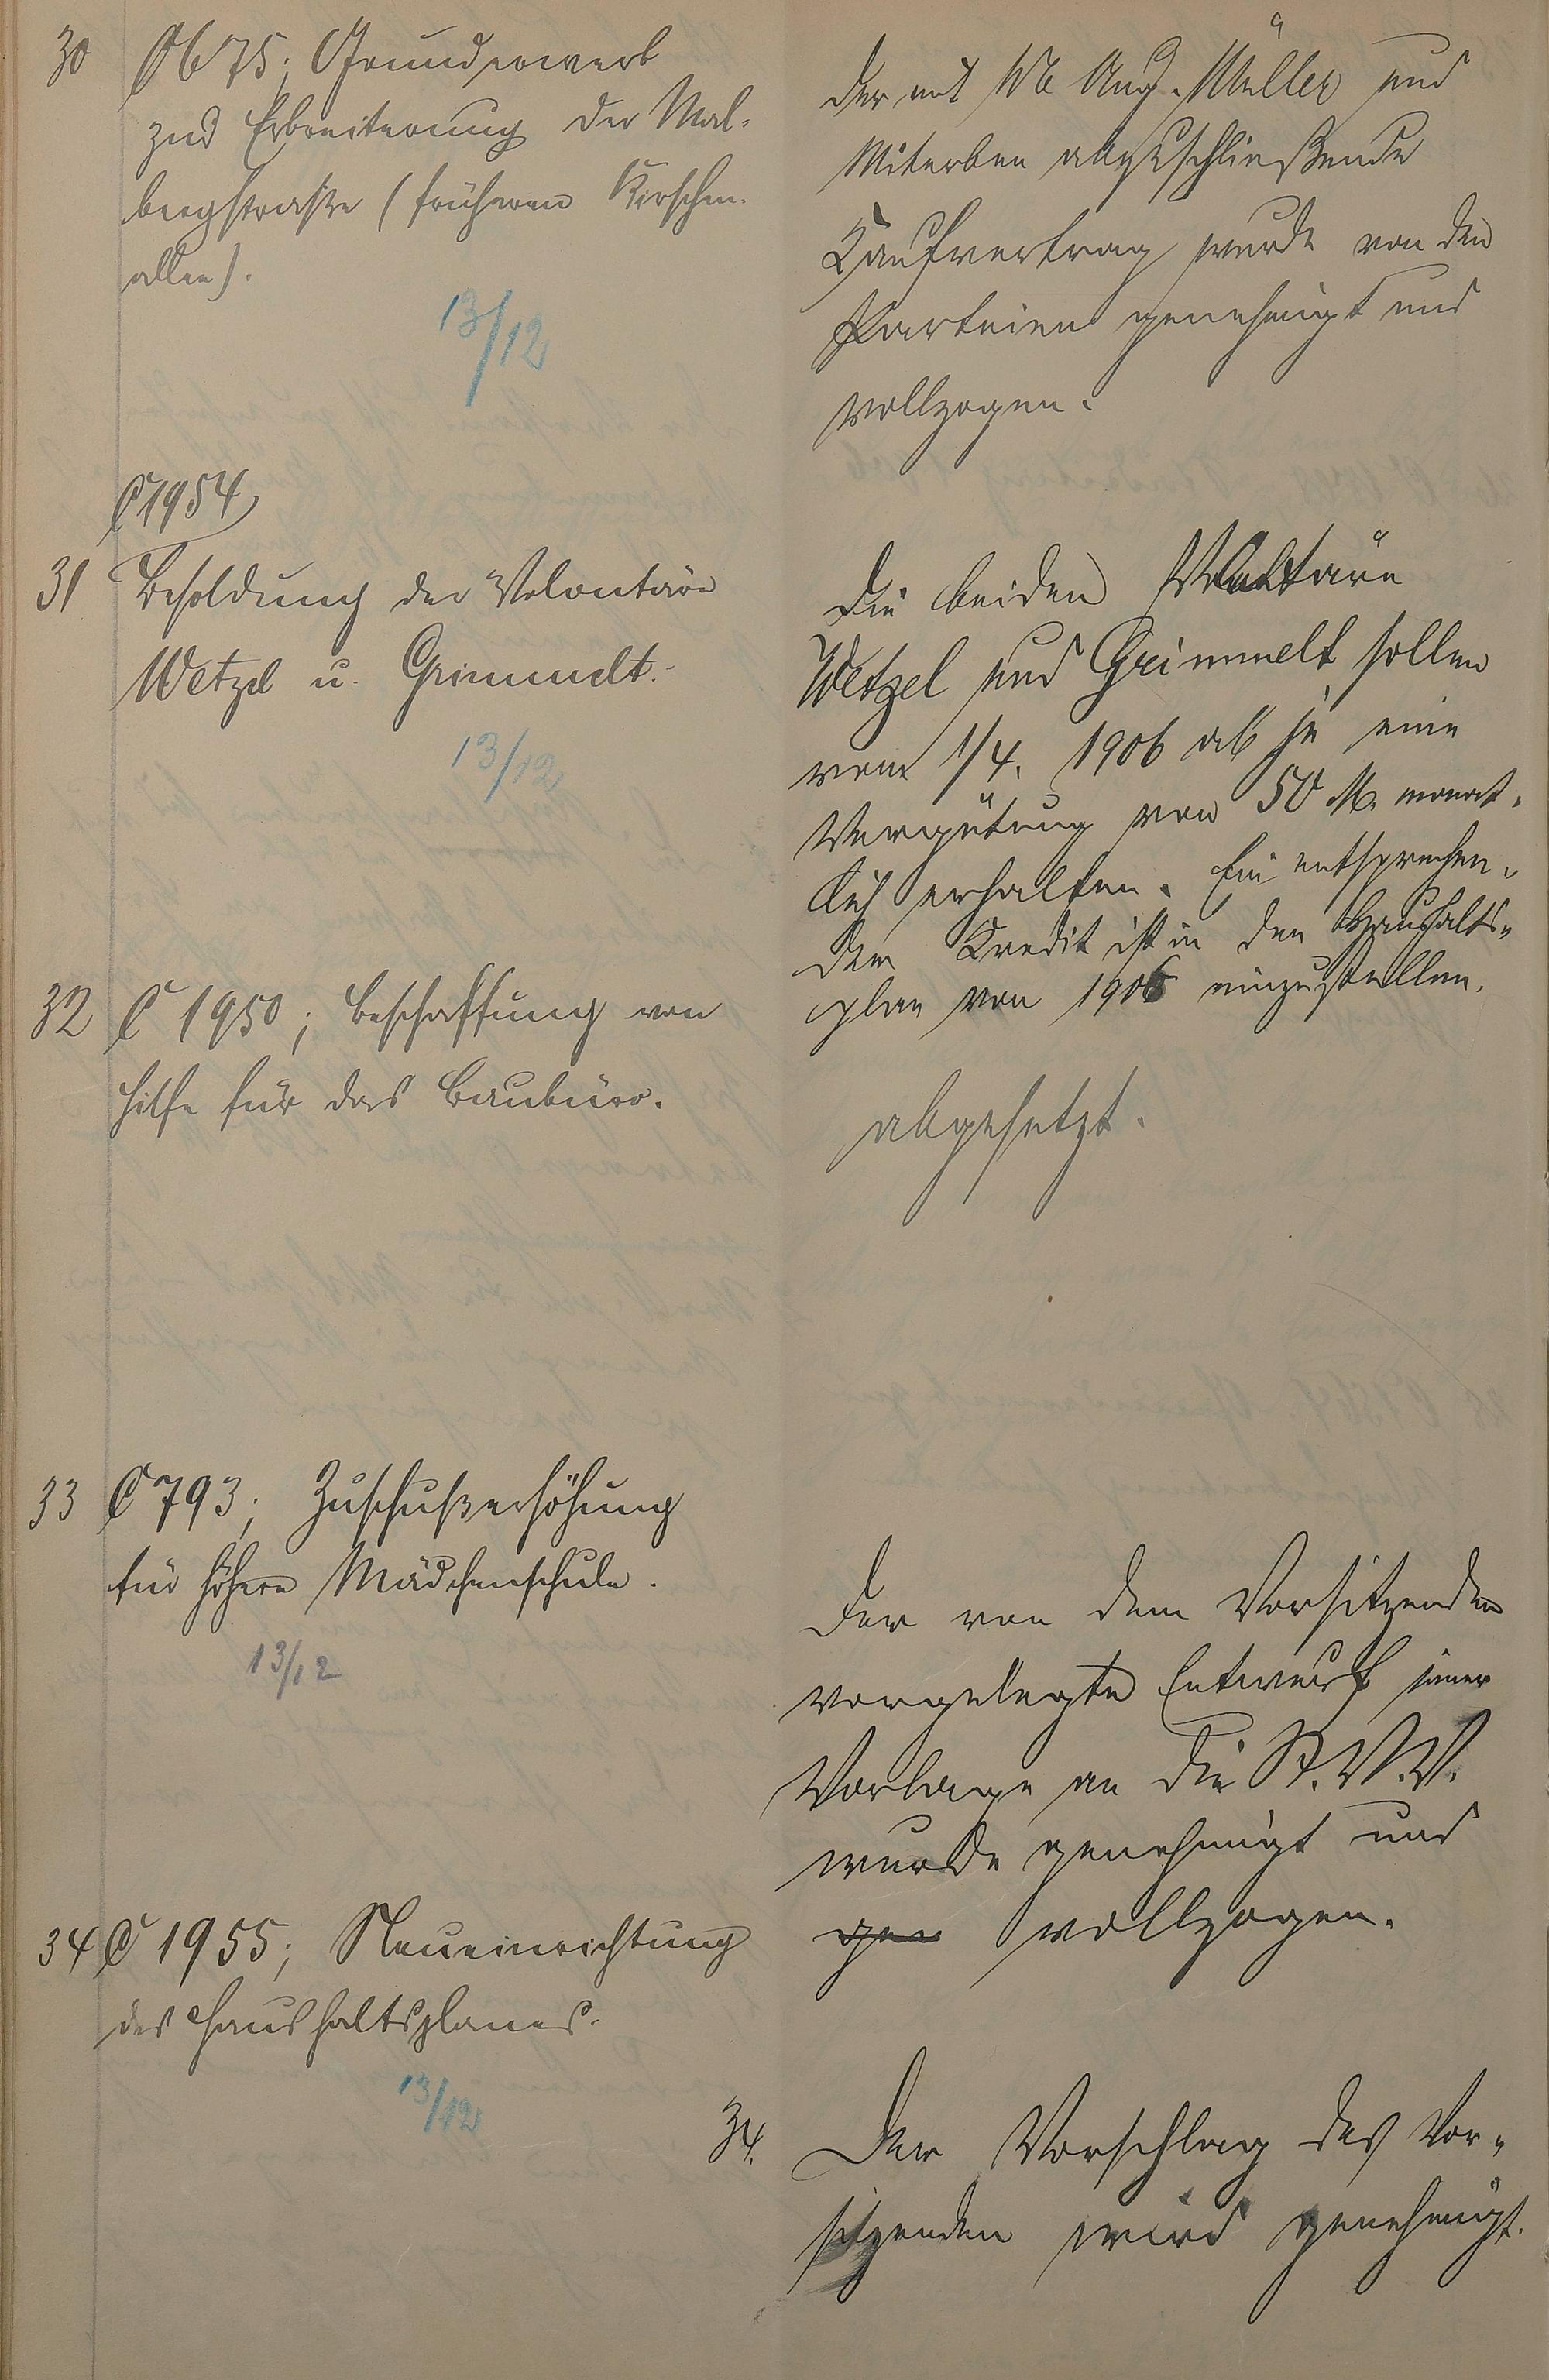 30 Ob 75; Grunderwerb
zur Erbreiterung der Mal-
bergstraße (früheren Kirschen-
allee).
13/12
Der mit Aug. Müller und
Miterben abzuschließende
Kaufvertrag wurde von den
Parteien genehmigt und
vollzogen.
C 1954
31 Besoldung der Volontäre
Wetzel u. Grimmelt.
13/12
Die beiden Volontäre
Wetzel und Grimmelt sollen
vom 1/4. 1906 ab je eine
Vergütung von 50 M. monat-
lich erhalten. Ein entsprechen-
der Kredit ist in den Haushalts-
plan von 1906 einzustellen.
32 C 1950; Beschaffung von
Hilfe für das Baubüro.
abgesetzt.
33 C 793; Zuschußerhöhung
für höhere Mädchenschule.
13/12
Der von dem Vorsitzenden
vorgelegte Entwurf einer
Vorlage an die St. V. V.
wurde genehmigt und
gen vollzogen.
34 C 1955; Neueinrichtung
des Haushaltsplanes.
13/12
34. Der Vorschlag des Vor-
sitzenden wird genehmigt.